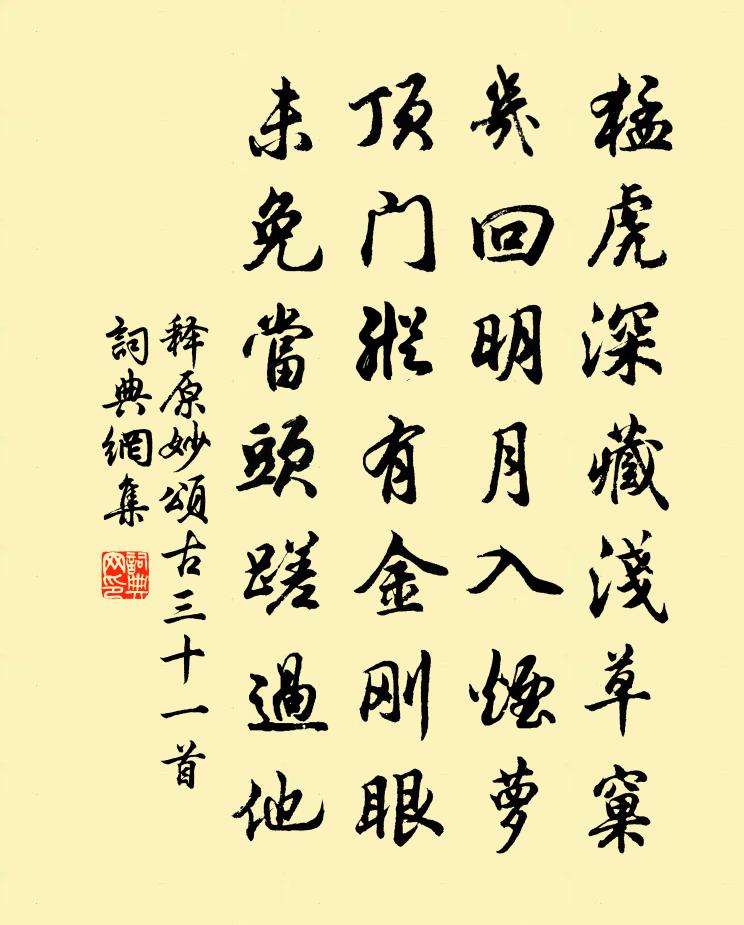 猛虎深藏淺草窠
幾回明月入煙萝
顶门縱有金刚眼
未免當頭蹉過他
释原妙頌古三十一首
詞典網集
詞典网印